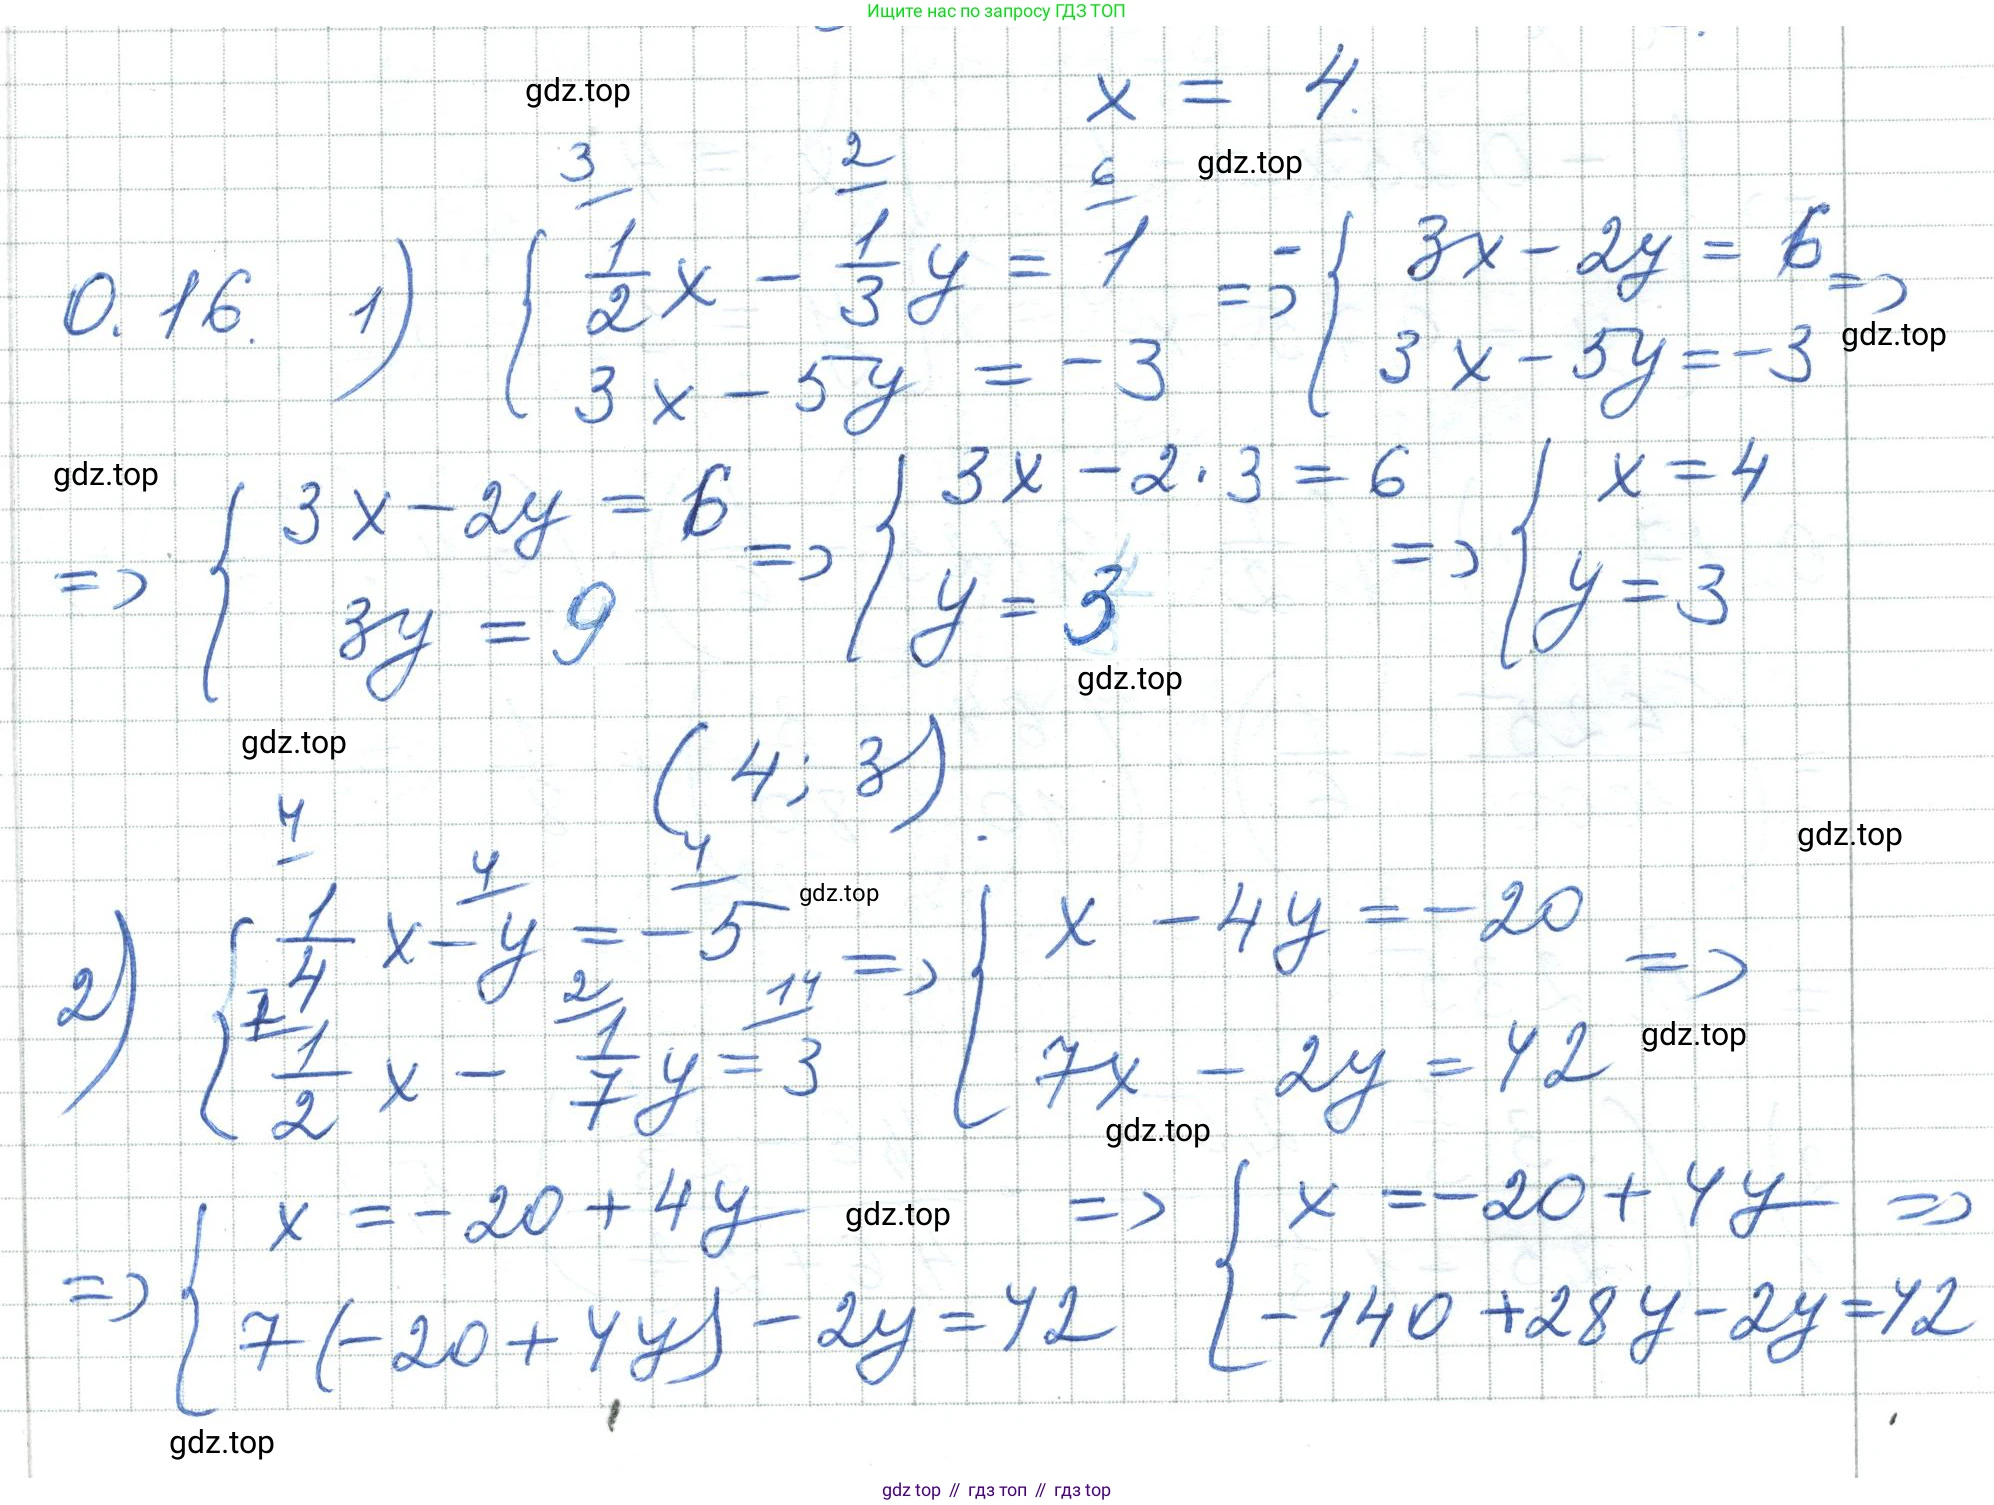 Ищите нас по запросу ГДЗ ТОП
x = 4.
gdz.top
gdz.top
3 2 6
0.16. 1) { 1/2 x - 1/3 y = 1 => - { 3x - 2y = 6 =>
3x - 5y = -3 3x - 5y = -3
gdz.top
gdz.top
=> { 3x - 2y = 6 => { 3x - 2·3 = 6 => { x = 4
3y = 9 y = 3 y = 3
gdz.top
gdz.top
(4; 3).
gdz.top
4 4 4
gdz.top
2) { 1/4 x - y = -5 => { x - 4y = -20 =>
7 2 14
1/2 x - 1/7 y = 3 7x - 2y = 42
gdz.top
gdz.top
=> { x = -20 + 4y => { x = -20 + 4y =>
gdz.top
7(-20 + 4y) - 2y = 42 -140 + 28y - 2y = 42
gdz.top
gdz top // гдз топ // гдз top